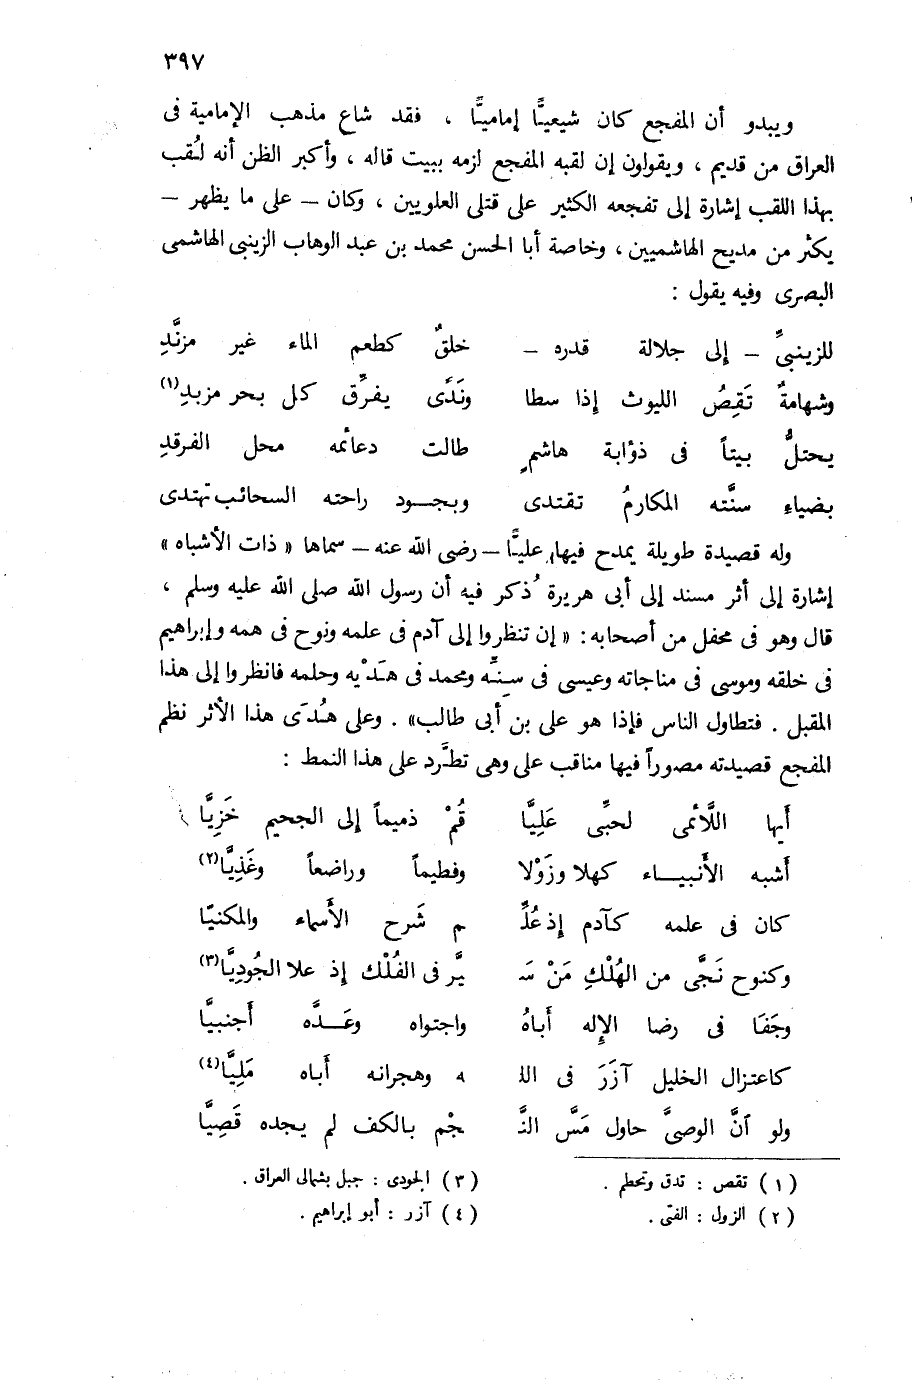 ٣٩٧
ويبدو أن المفجع كان شيعيًّا إماميًّا ، فقد شاع مذهب الإمامية فى
العراق من قديم ، ويقولون إن لقبه المفجع لزمه ببيت قاله ، وأكبر الظن أنه لُقب
بهذا اللقب إشارة إلى تفجعه الكثير على قتلى العلويين ، وكان – على ما يظهر –
يكثر من مديح الهاشميين ، وخاصة أبا الحسن محمد بن عبد الوهاب الزينبى الهاشمى
البصرى وفيه يقول :
للزينبىِّ – إلى جلالة قدره – خلقٌ كطعم الماء غير مزنَّدِ
وشهامةٌ تَقِصُ الليوث إذا سطا ونَدًى يفرِّق كل بحر مزبدِ(١)
يحتلُّ بيتاً فى ذؤابة هاشمٍ طالت دعائمه محل الفرقدِ
بضياء سنَّته المكارمُ تقتدى وبجـود راحته السحائب تهتدى
وله قصيدة طويلة يمدح فيها عليًّا – رضى الله عنه – سماها « ذات الأشباه »
إشارة إلى أثر مسند إلى أبى هريرة ذُكر فيه أن رسول الله صلى الله عليه وسلم ،
قال وهو فى محفل من أصحابه : « إن تنظروا إلى آدم فى علمه ونوح فى همه وإبراهيم
فى خلقه وموسى فى مناجاته وعيسى فى سِنِّه ومحمد فى هَدْيه وحلمه فانظروا إلى هذا
المقبل . فتطاول الناس فإذا هو على بن أبى طالب» . وعلى هُدَى هذا الأثر نظم
المفجع قصيدته مصوراً فيها مناقب على وهى تطَّرد على هذا النمط :
أيها اللَّائمى لحبِّى عَلِيَّا قُمْ ذميماً إلى الجحيم خَزِيَّا
أشبه الأنبيـاء كهلا وزَوْلا وفطيماً وراضعاً وغَذِيَّا(٢)
كان فى علمه كآدم إذ عُلِّ م شَرح الأسماء والمكنيّا
وكنوح نَجَّى من الهُلْكِ مَنْ سَ يَّر فى الفُلْك إذ علا الجُودِيَّا(٣)
وجَفَا فى رضا الإِله أَباهُ واجتواه وعَـدَّه أَجنبيَّا
كاعتزال الخليل آزَرَ فى الل ه وهجرانه أَباه مَلِيَّا(٤)
ولو أنَّ الوصىَّ حاول مَسَّ النَّ جْم بالكف لم يجده قَصِيَّا
(١) تقص : تدق وتحطم .
(٢) الزول : الفتى .
(٣) الجودى : جبل بشمالى العراق .
(٤) آزر : أبو إبراهيم .